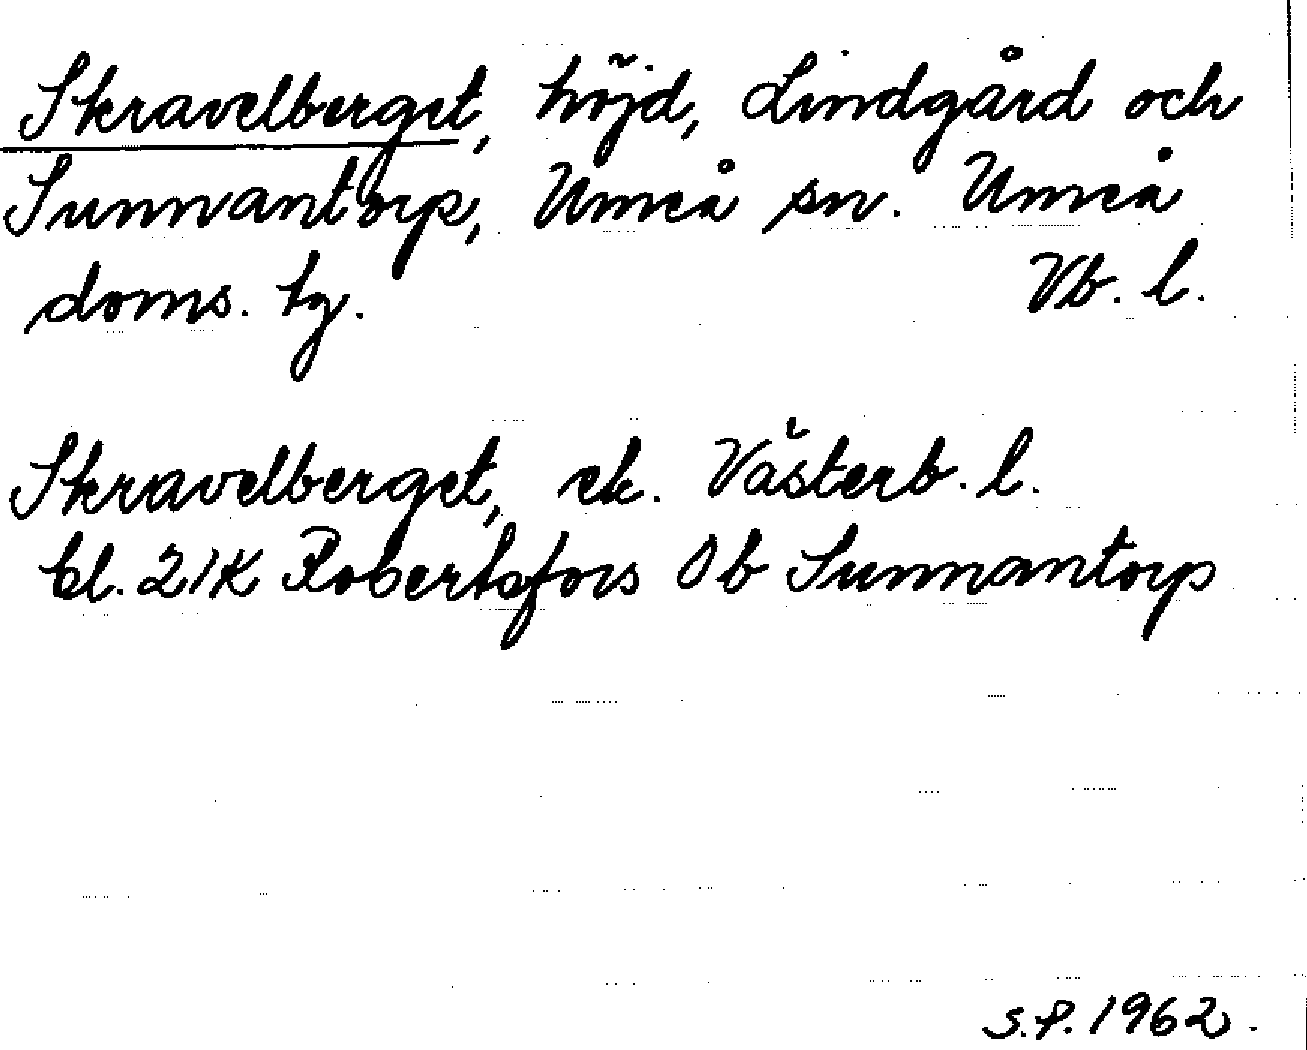 Skravelberget, höjd, Lindgård och
Sunnantorp, Umeå sn. Umeå
doms. tg. Vb. l.
Skravelberget, ek. Västerb. l.
bl. 21K Robertsfors Ob Sunnantorp
S.P. 1962.